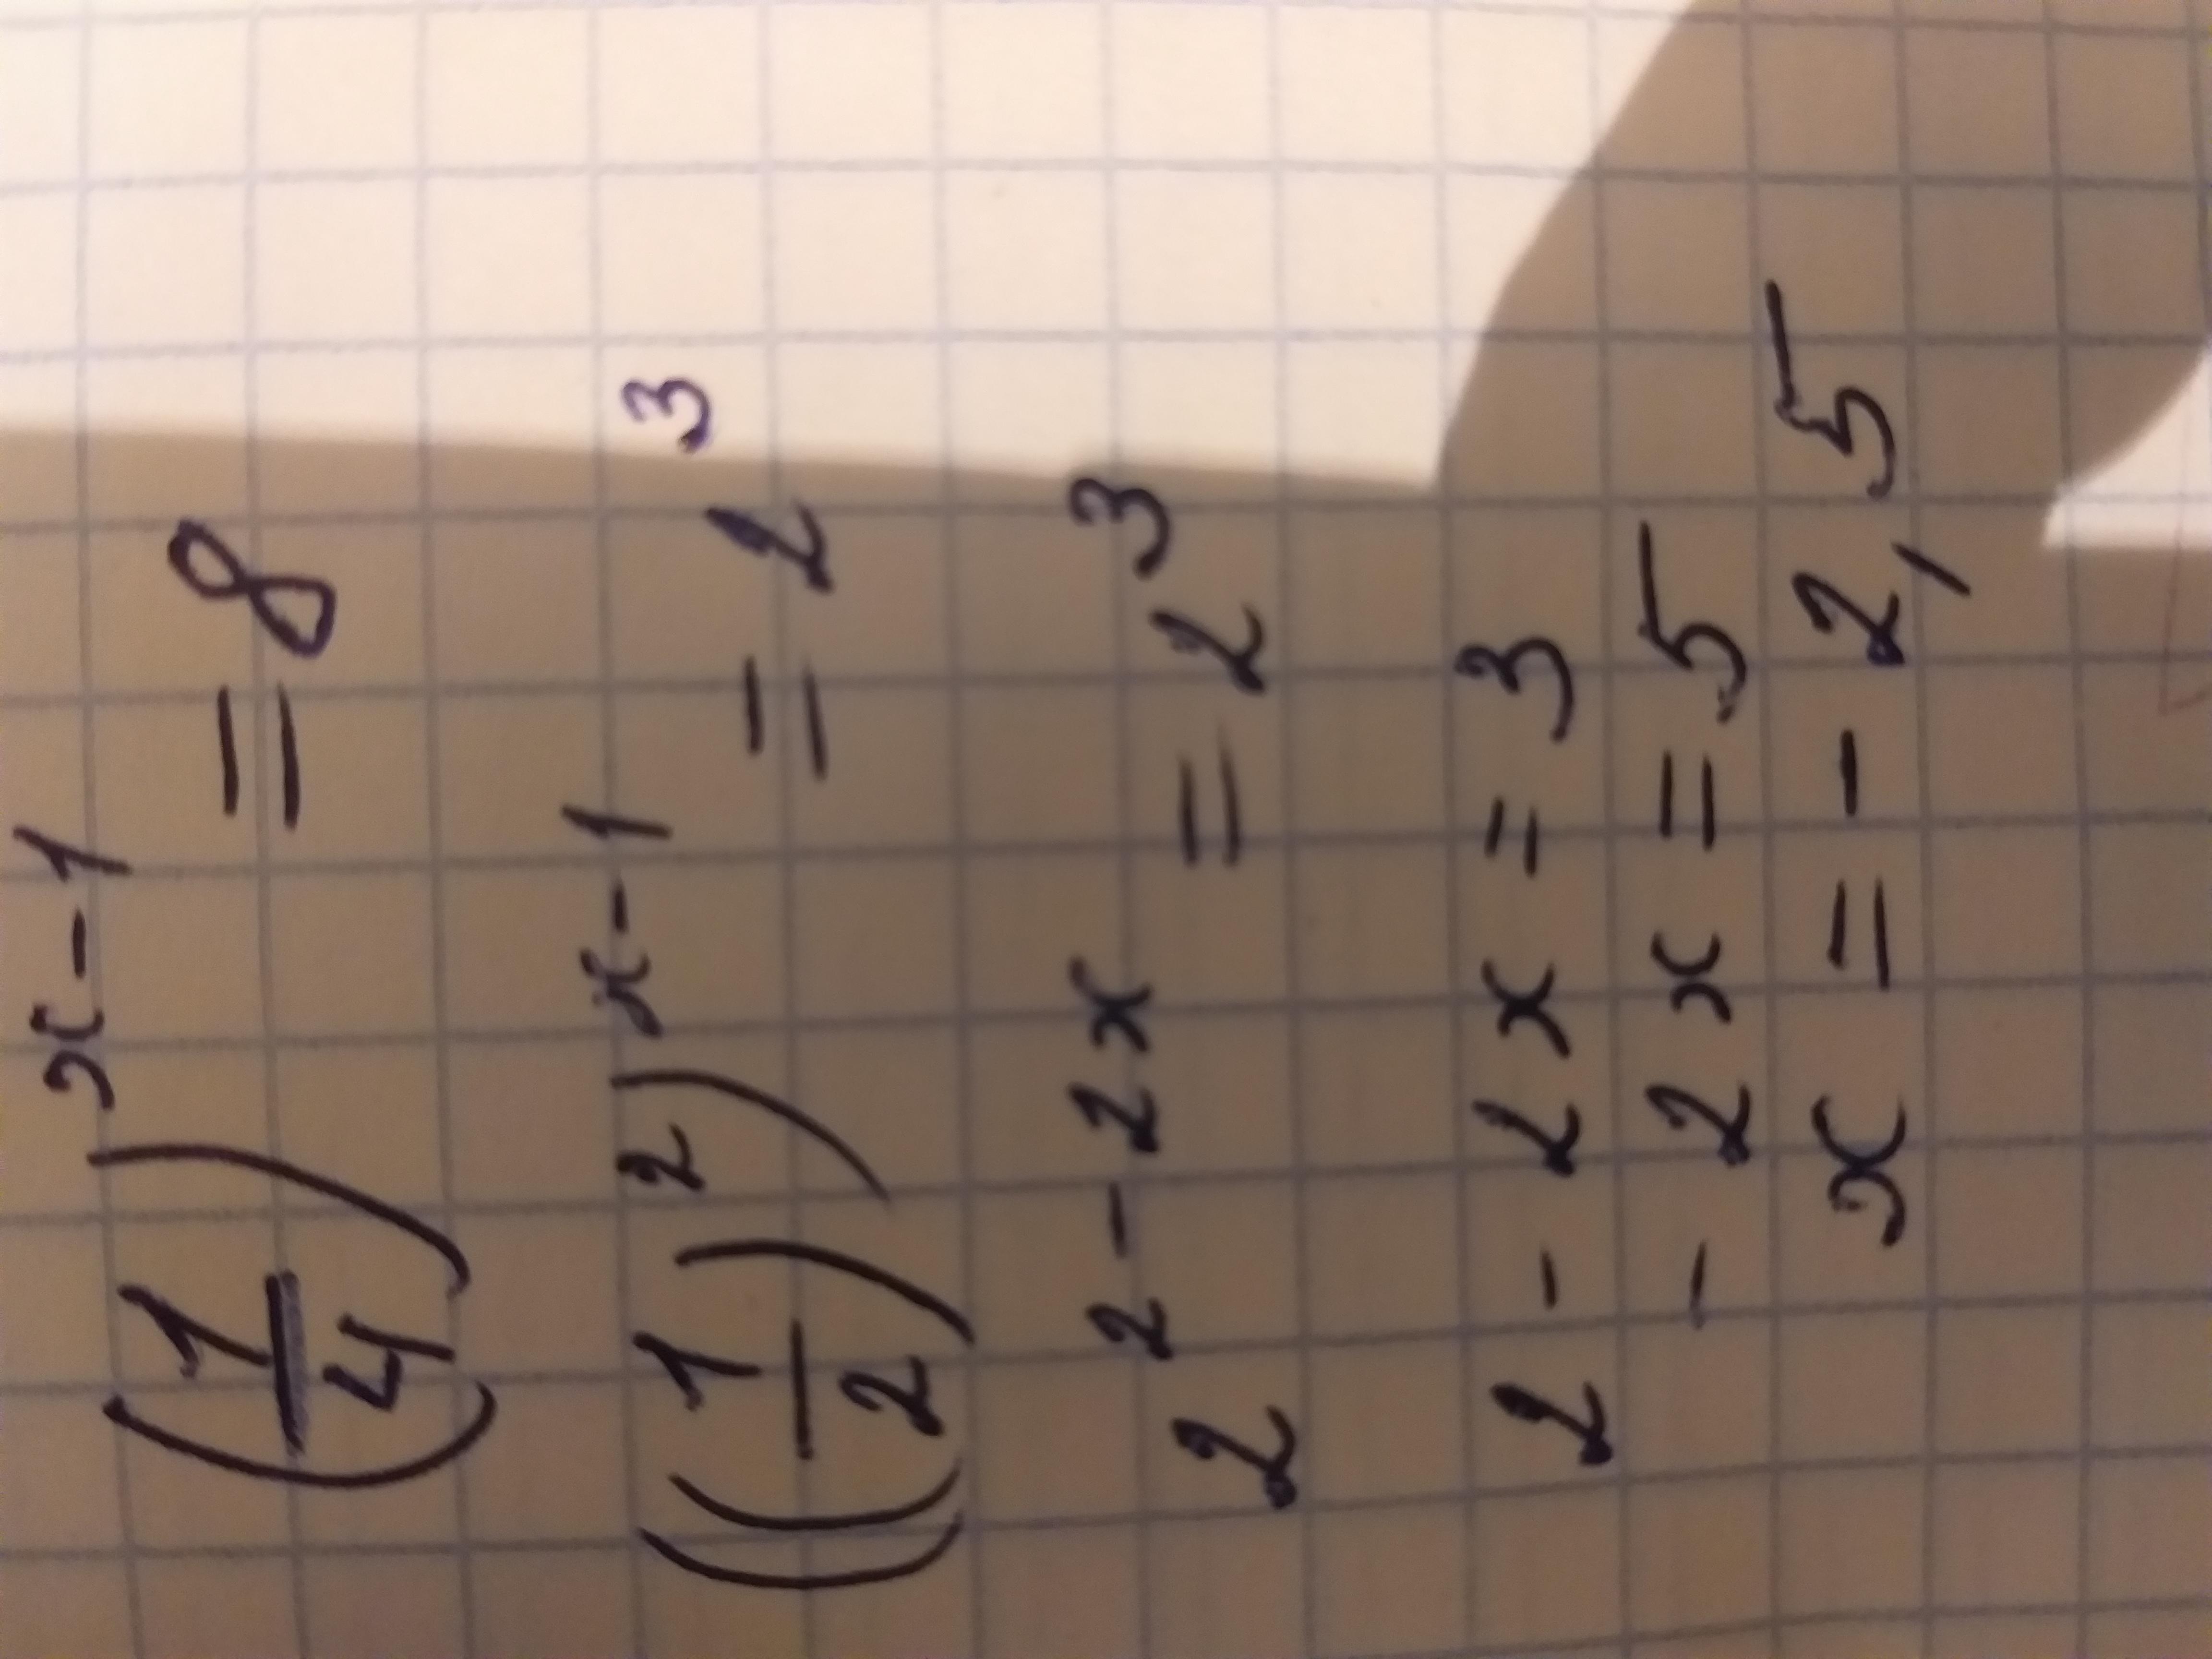 (1/4)^x-1 = 8
((1/2)^2)^x-1 = 2^3
2^2-2x = 2^3
2-2x=3
-2x=5
x=-2,5